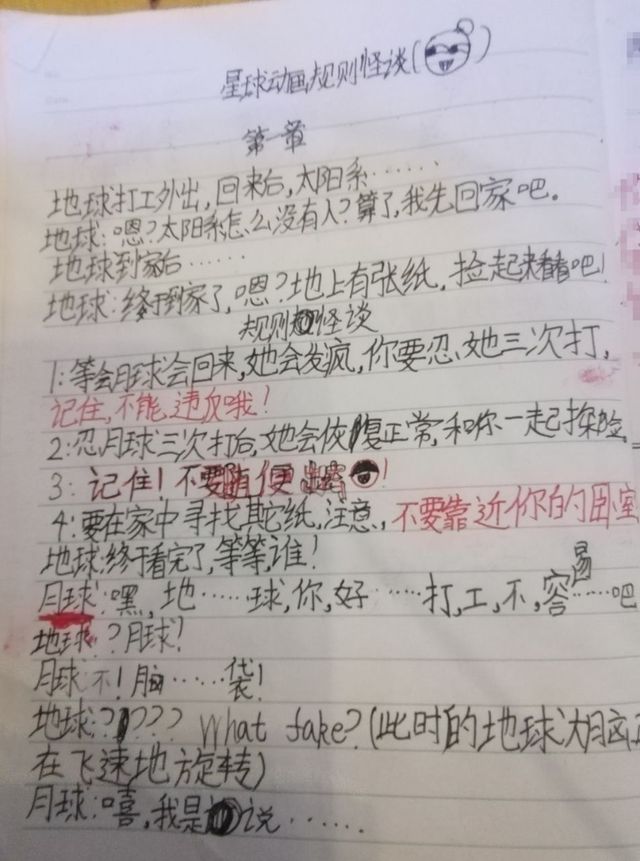 星球动画规则怪谈( )
第一章
地球打工外出，回来后，太阳系……
地球：嗯？太阳系怎么没有人？算了，我先回家吧。
地球到家后……
地球：终于到家了，嗯？地上有张纸，捡起来看看吧！
规则怪谈
1：等会月球会回来，她会发疯，你要忍她三次打，
记住，不能违反哦！
2：忍月球三次打后，她会恢复正常，和你一起探险。
3：记住！不要随便出！
4：要在家中寻找其它纸，注意，不要靠近你的卧室
地球：终于看完了，等等谁！
月球：嘿，地……球，你，好……打，工，不，容易……吧
地球：？月球！
月球：不！脑……袋！
地球：？？？？What fake?(此时的地球大脑正
在飞速地旋转)
月球：嘻，我是说……